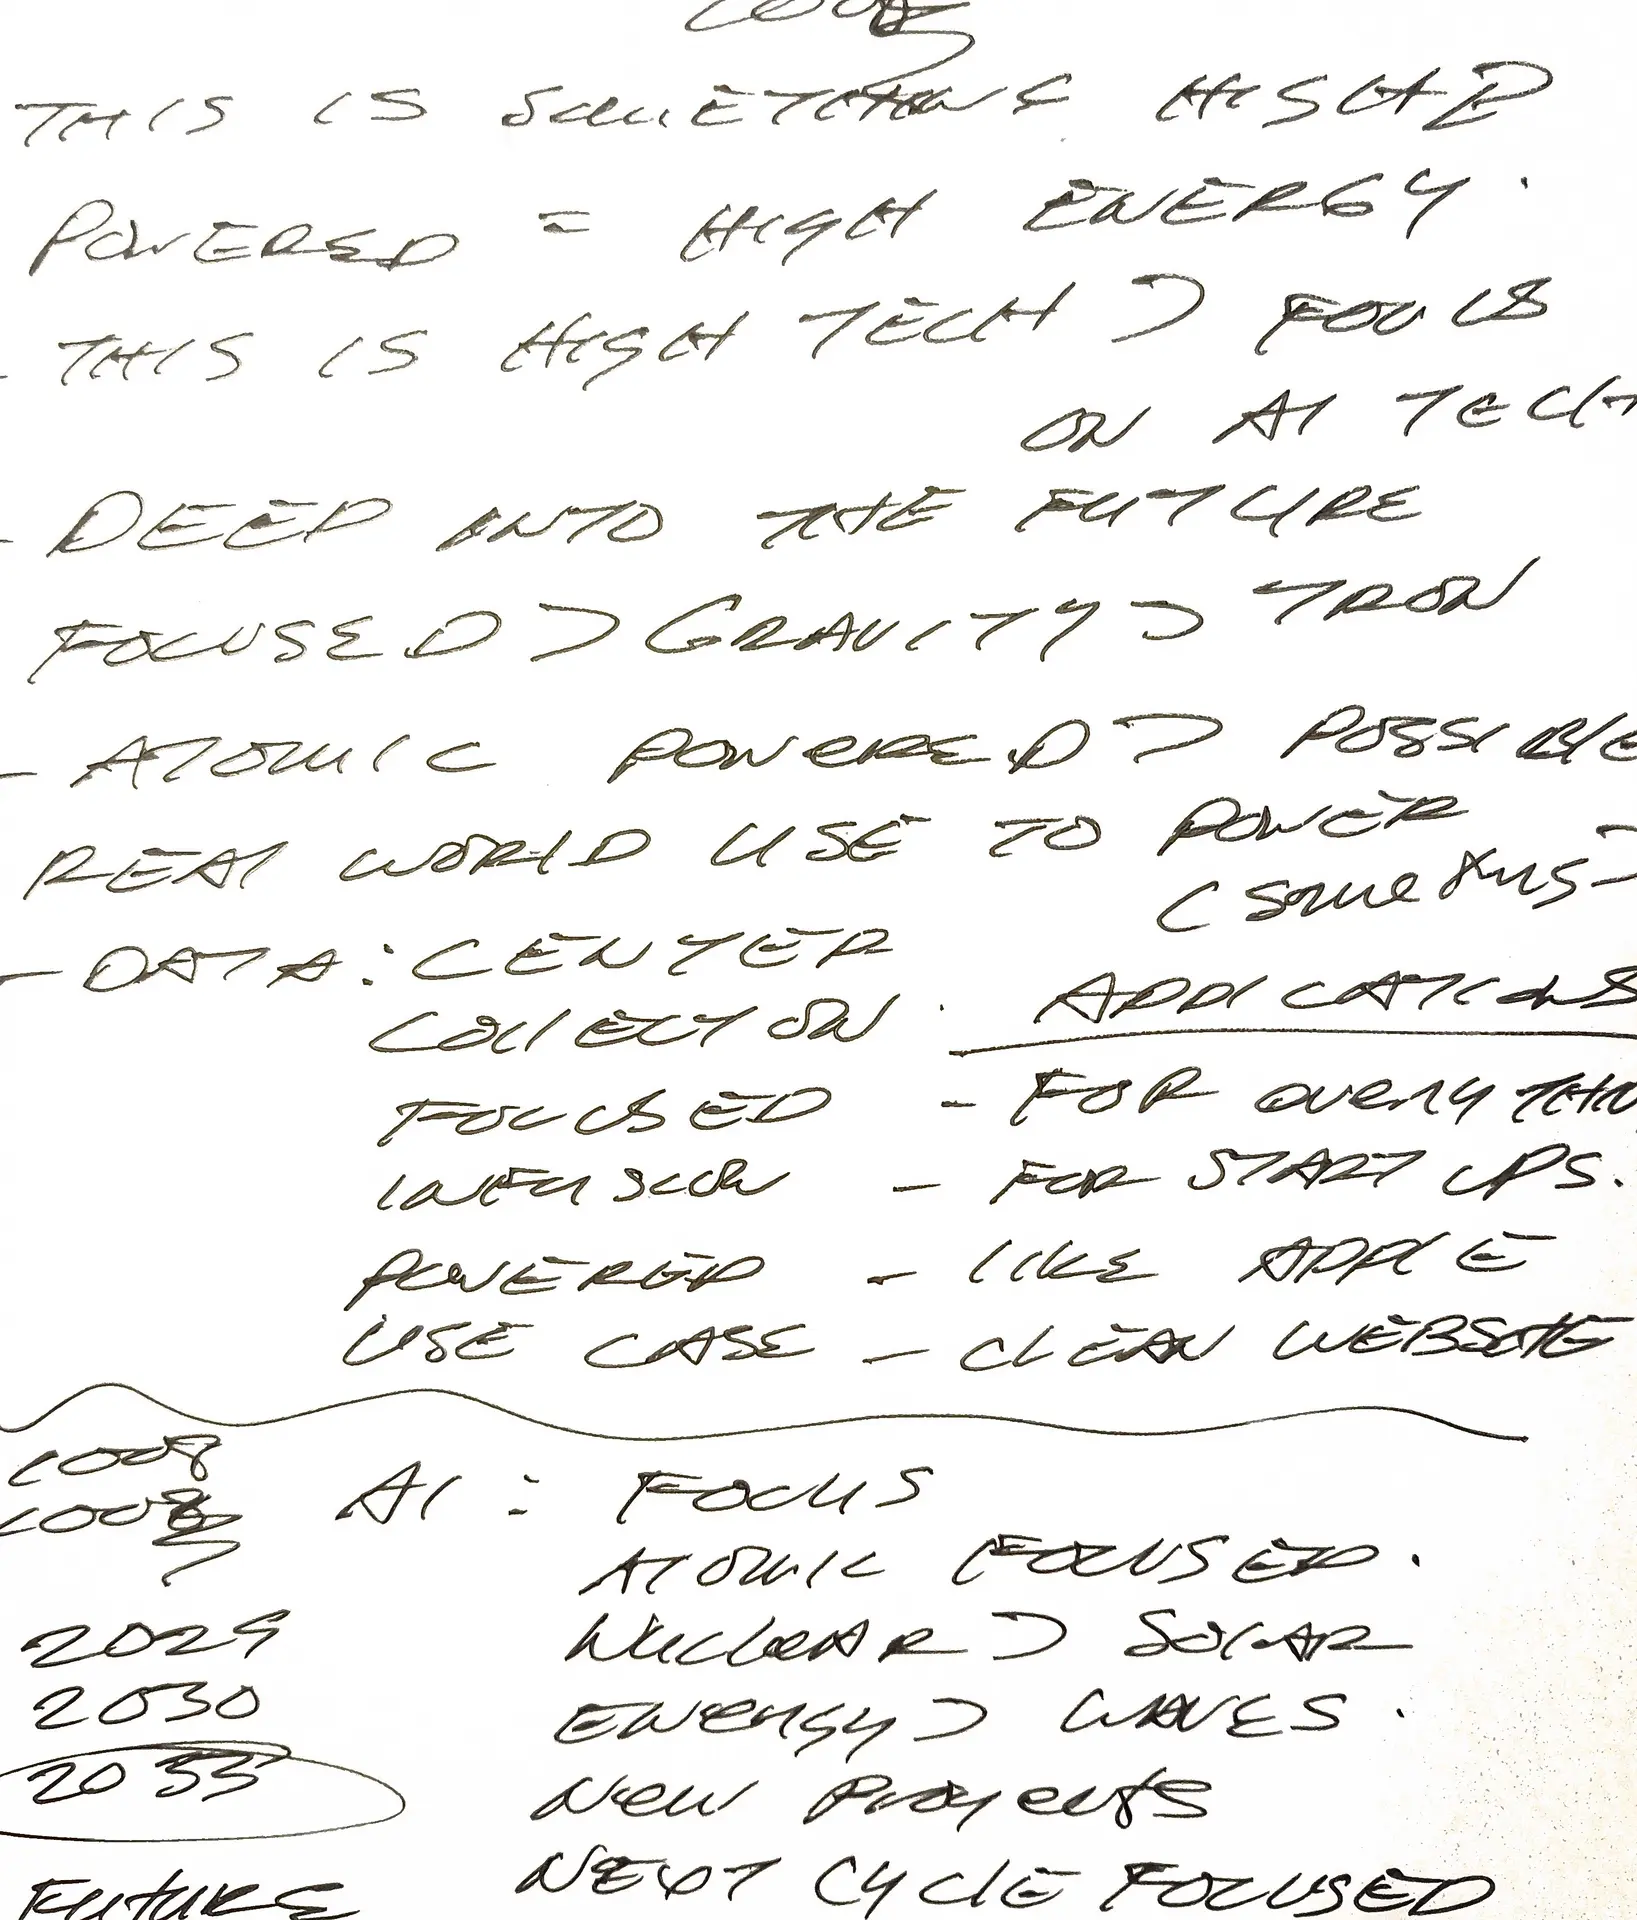 THIS IS SOMETHING HIGH
POWERED = HIGH ENERGY.
- THIS IS HIGH TECH > FOCUS
ON AI TECH
- DEEP INTO THE FUTURE
FOCUSED > GRAVITY > TRON
- ATOMIC POWERED > POSSIBLE
REAL WORLD USE TO POWER
(SOMETHING
- DATA: CENTER
COLLECTION.
FOCUSED
INFUSION
POWERED
USE CASE
APPLICATIONS
- FOR EVERYTHIN
- FOR START UPS.
- LIKE APPLE
- CLEAN WEBSITE
2029
2030
2035
FUTURE
AI: FOCUS
ATOMIC FOCUSED.
NUCLEAR > SOLAR
ENERGY > WAVES.
NEW PROJECTS
NEXT CYCLE FOCUSED